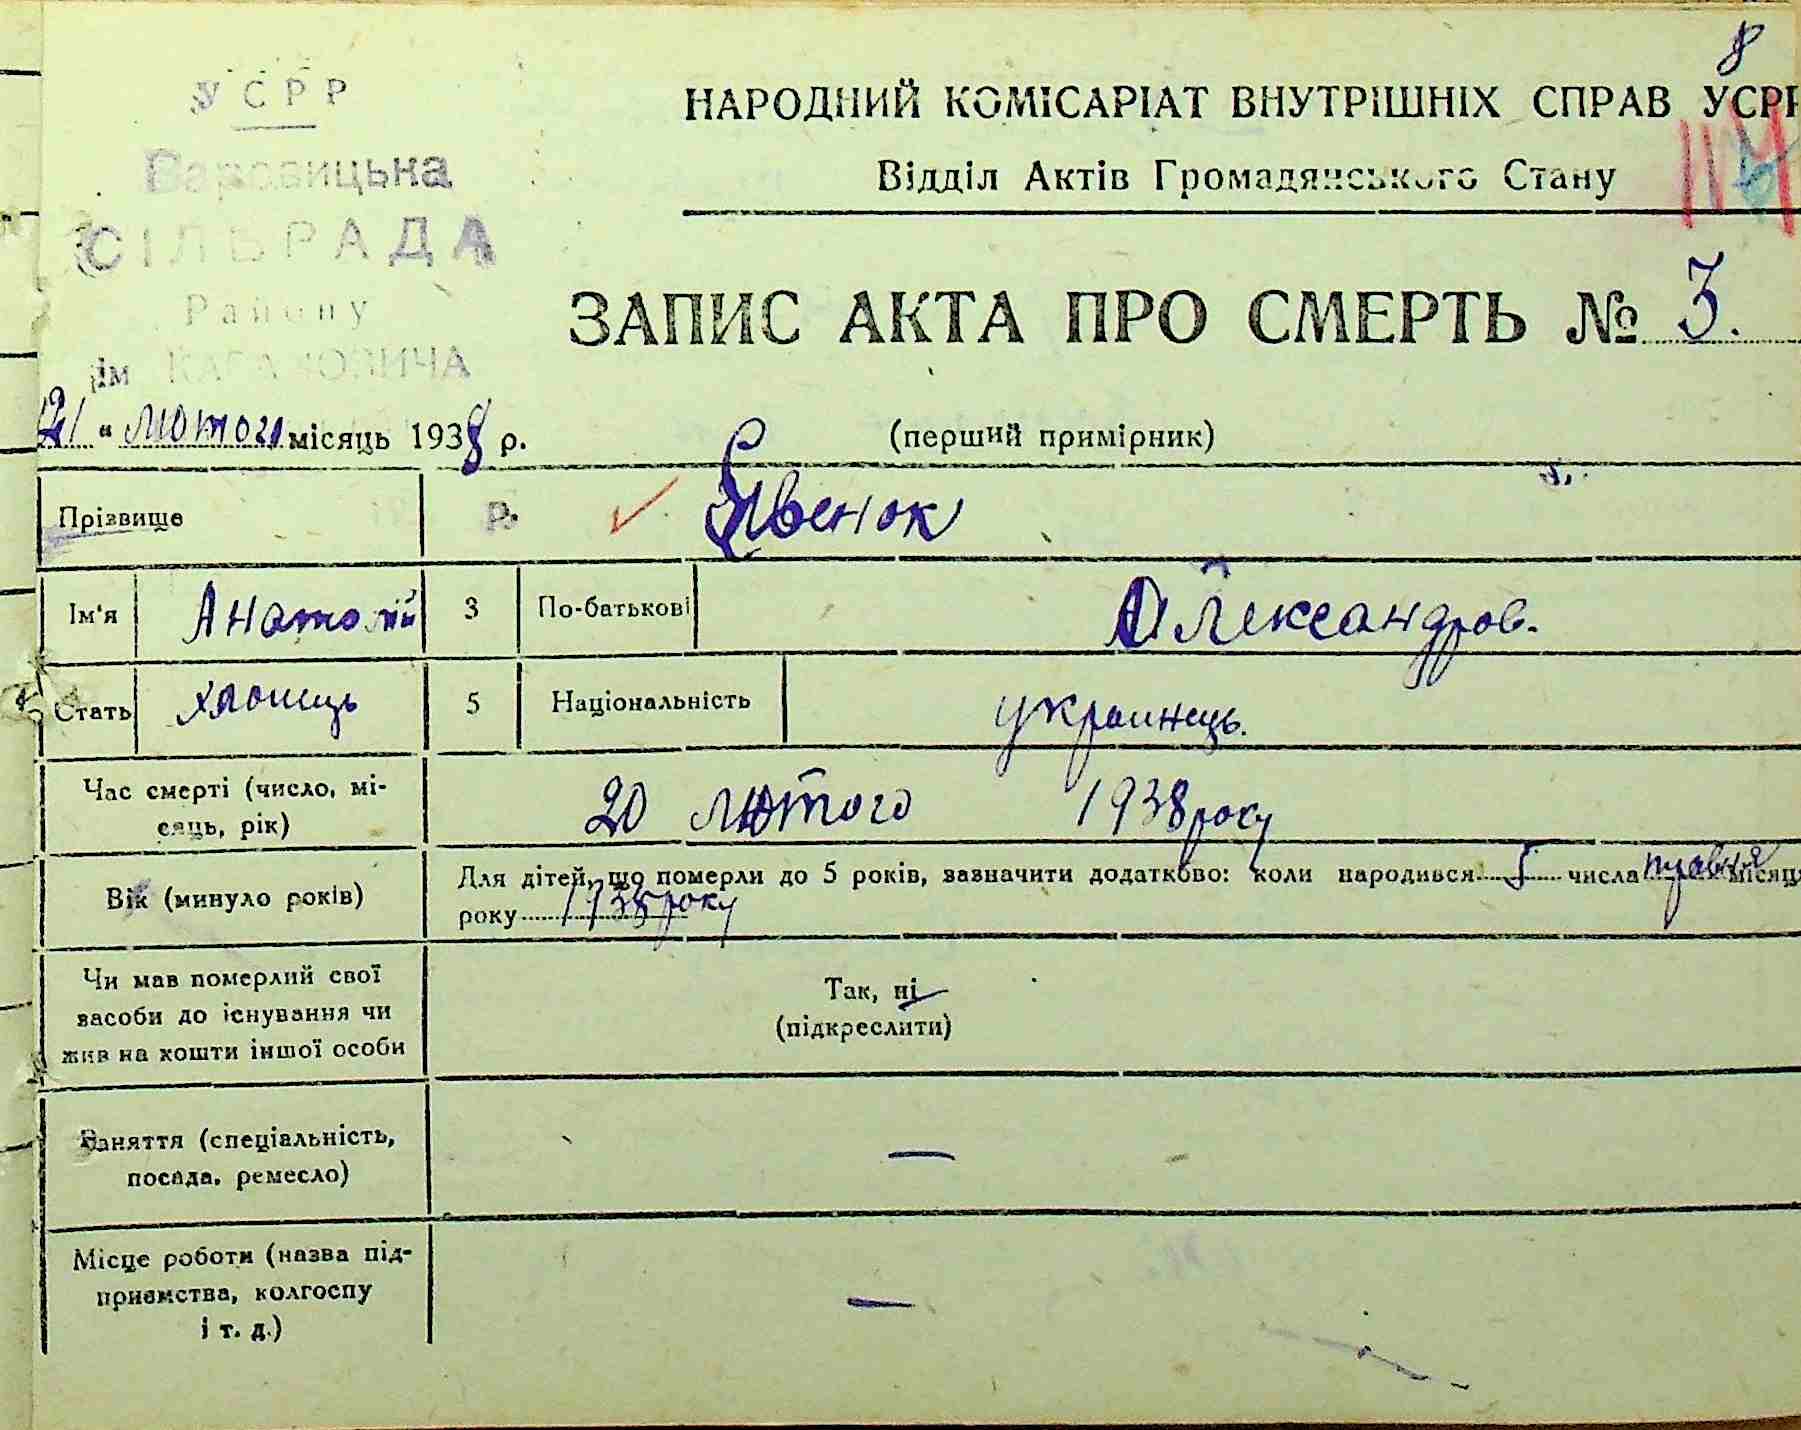 8
УСРР
НАРОДНИЙ КОМІСАРІАТ ВНУТРІШНІХ СПРАВ УСРР
Варовицька
Відділ Актів Громадянського Стану
СІЛЬРАДА
Району
ЗАПИС АКТА ПРО СМЕРТЬ № 3.
ім КАГАНОВИЧА
21 " лютого місяць 1938 р.
(перший примірник)
Прізвище
р.
Ім'я Анатолій 3 По-батькові Олександров.
Стать хлопець 5 Національність украинець.
Час смерті (число, мі-
сяць, рік)
20 лютого 1938 року
Вік (минуло років)
Для дітей, що померли до 5 років, зазначити додатково: коли народився 5 числа травня місяця
року 1935 року
Чи мав померлий свої
засоби до існування чи
жив на кошти іншої особи
Так, ні
(підкреслити)
Заняття (спеціальність,
посада, ремесло)
—
Місце роботи (назва під-
приємства, колгоспу
і т. д.)
—